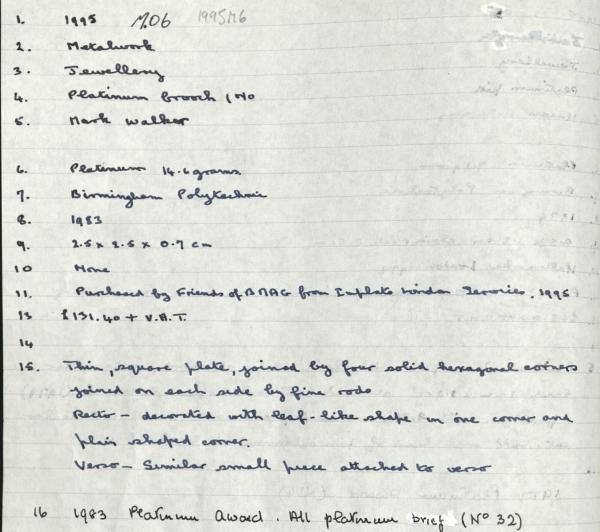 1. 1995 M.06 1995M6
2. Metalwork
3. Jewellery
4. Platinum brooch 1 No
5. Mark Walker
6. Platinum 14.6 grams.
7. Birmingham Polytechnic
8. 1983
9. 2.5 x 2.5 x 0.7 cm
10 None
11. Purchased by Friends of BMAG from Implats London Services, 1995
13 £131.40 + V.A.T.
14
15. Thin, square plate, joined by four solid hexagonal corners
joined on each side by fine rods
Recto - decorated with leaf-like shape in one corner and
plain shaped corner.
Verso - Similar small piece attached to verso
16 1983 Platinum Award. All platinum brief (No 32)